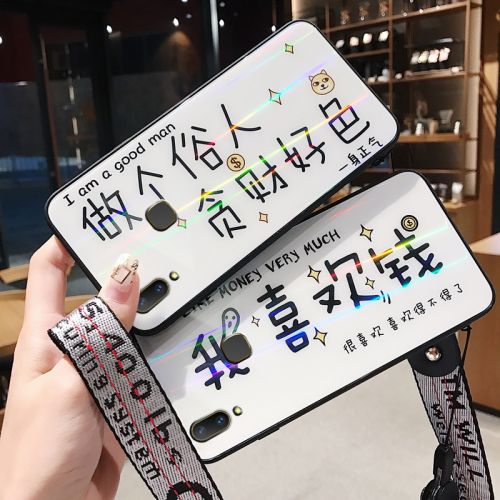 I am a good man
做个俗人
贪财好色
一身正气
LIKE MONEY VERY MUCH
我喜欢钱
很喜欢喜欢得不得了
400 lbs
SYSTEM
WILL